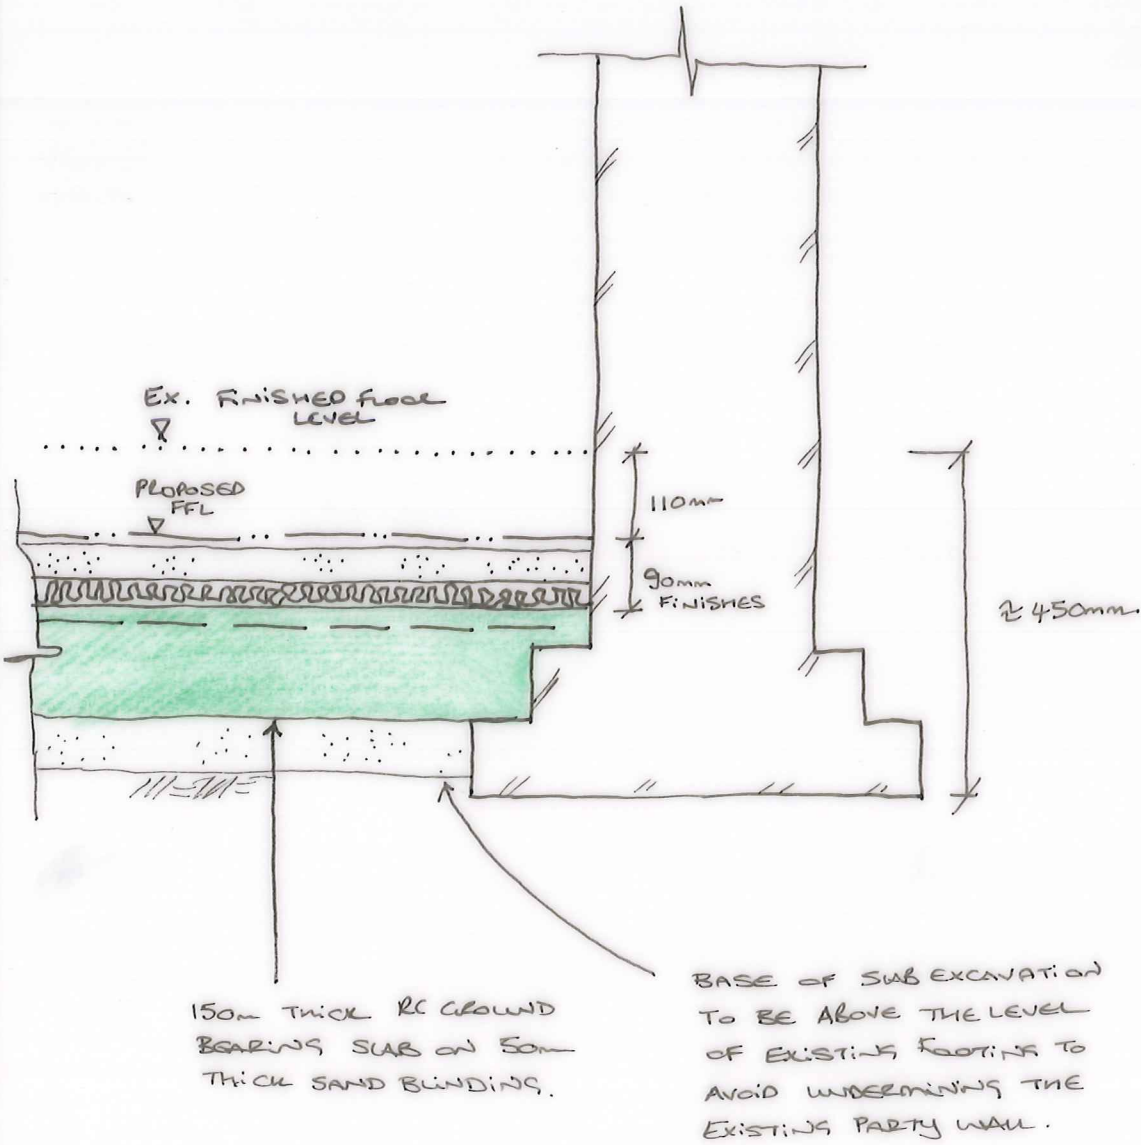 EX. FINISHED FLOOR
LEVEL
PROPOSED
FFL
110mm
90mm
FINISHES
≈ 450mm
150mm THICK RC GROUND
BEARING SLAB ON 50mm
THICK SAND BLINDING.
BASE OF SLAB EXCAVATION
TO BE ABOVE THE LEVEL
OF EXISTING FOOTING TO
AVOID UNDERMINING THE
EXISTING PARTY WALL.